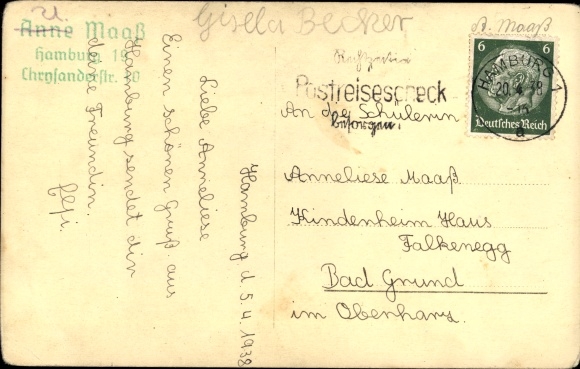 U.
Anne Maaß
Hamburg 19
Chrysanderstr. 20
Gisela Becker
A. Maaß
6 6
Deutsches Reich
HAMBURG 1
20.4.38
Rechtzeitig
Postreisescheck
besorgen!
An die Schülerin
Anneliese Maaß
Kindenheim Haus
Falkenegg
Bad Grund
im Oberharz.
Hamburg d. 5.4.1938
Liebe Anneliese
Einen schönen Gruß aus
Hamburg sendet dir
deine Freundin.
Elfi.